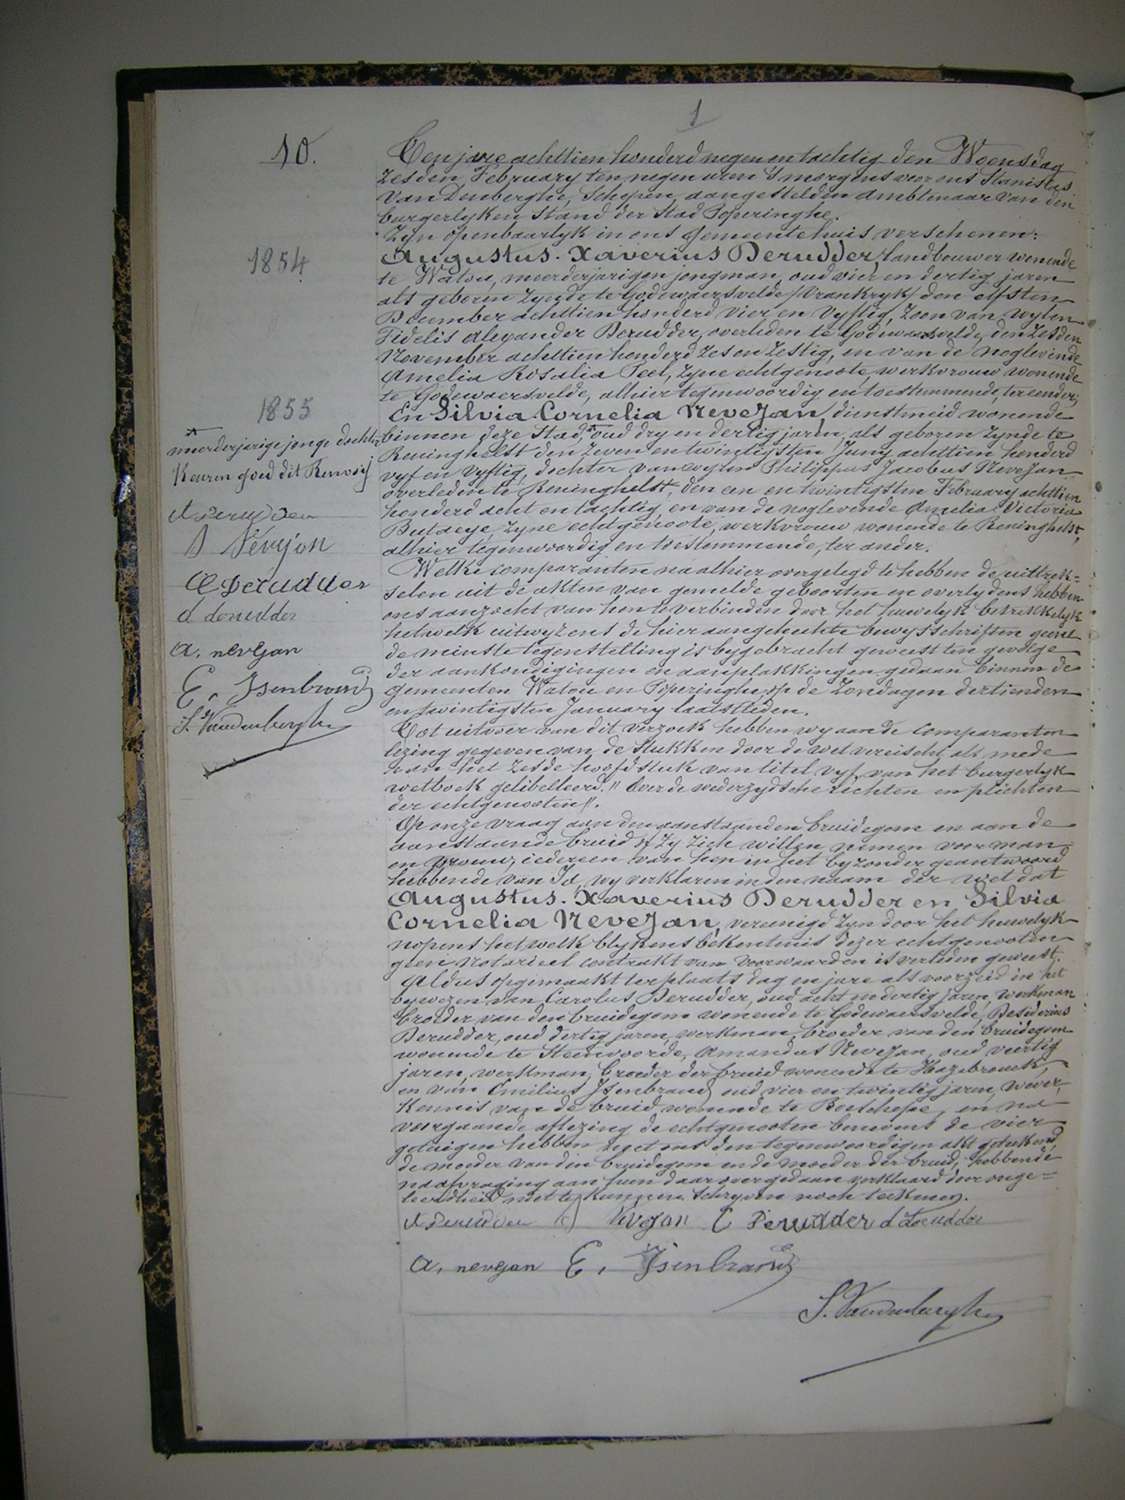 1
10.
Een jare achttien honderd negen en tachtig den Woensdag
zesden February ten negen uren 's morgens voor ons Stanislas
Van Denberghe, Schepen, aangestelden ambtenaar van den
burgerlyken Stand der Stad Poperinghe.
Zyn openbaarlyk in ons gemeentehuis verschenen:
Augustus. Xaverius Derudder, landbouwer wonende
1854
te Watou, meerderjarigen jongman, oud vier en dertig jaren
als geboren zynde te Godewaersvelde (Vrankryk) den elfsten
December achttien honderd vier en vyftig, zoon van wylen
Fidelis Alexander Derudder, overleden te Godewaersvelde, den zesden
November achttien honderd zes en zestig, en van de noglevende
Amelia Rosalia Feet, zyne echtgenoote, werkvrouw wonende
te Godewaersvelde, alhier tegenwoordig en toestemmende, ter eender;
1855
En Silvia Cornelia Nevejan, dienstmeid wonende
binnen deze Stad, oud dry en dertig jaren, als geboren zynde te
Reninghelst den zeven en twintigsten Juny achttien honderd
vyf en vyftig, dochter van wylen Philippus Jacobus Nevejan
overleden te Reninghelst, den een en twintigsten February achttien
honderd acht en tachtig, en van de noglevende Amelia Victoria
Butaeye, zyne echtgenoote, werkvrouw wonende te Reninghelst,
alhier tegenwoordig en toestemmende, ter ander.
meerderjarige jonge dochter
Keuren goed dit Renvooij
A Derudder
S Nevejon
C Derudder
d derudder
a. nevejan
E. Isenbrand
S. Vandenberghe
Welke comparanten na alhier overgelegd te hebben de uittrek=
selen uit de akten van gemelde geboorten en overlydens hebben
ons aanzocht van hen te verbinden door het huwelyk betrekkelyk
hetwelk uitwyzens de hier aangehechte bewysschriften geene
de minste tegenstelling is bygebracht geweest ten gevolge
der aankondigingen en aanplakkingen gedaan binnen de
gemeenten Watou en Poperinghe, op de Zondagen dertienden
en twintigsten January laatstleden.
Tot uitvoer van dit verzoek hebben wy aan de Comparanten
lezing gegeven van de stukken door de wet vereischt als mede
van het zesde hoofdstuk van titel vyf van het burgerlyk
wetboek gelibelleerd "Over de wederzydsche rechten en plichten
der echtgenooten".
Op onze vraag aan den aanstaanden bruidegom en aan de
aanstaande bruid of zy zich willen nemen voor man
en vrouw, iedereen van hen in het byzonder geantwoord
hebbende van Ja, wy verklaren in den naam der wet dat
Augustus. Xaverius Derudder en Silvia
Cornelia Nevejan, vereenigd zyn door het huwelyk
nopens hetwelk blykens bekentenis dezer echtgenooten
geen notarieel contrakt van voorwaarden is verleden geweest.
Aldus opgemaakt ter plaats dag en jare als voorzeid in het
bywezen van Carolus Derudder, oud acht en dertig jaren, werkman
broeder van den bruidegom wonende te Godewaersvelde, Desiderius
Derudder, oud dertig jaren, werkman, broeder van den bruidegom
wonende te Steenvoorde, Amandus Nevejan, oud veertig
jaren, werkman, broeder der bruid wonende te Hazebrouck,
en van Emilius Isenbrand, oud vier en twintig jaren, wever,
Kennis van de bruid, wonende te Boeschepe, en na
voorgaande aflezing de echtgenooten benevens de vier
getuigen hebben met ons den tegenwoordigen akt geteekend,
de moeder van den bruidegom en de moeder der bruid, hebbende
na afvraging aan hun daarover gedaan verklaard door onge=
leerdheid niet te kunnen schryven noch teekenen.
A Derudder S Nevejan C Derudder d derudder
a. nevejan E. Isenbrand
S. Vandenberghe